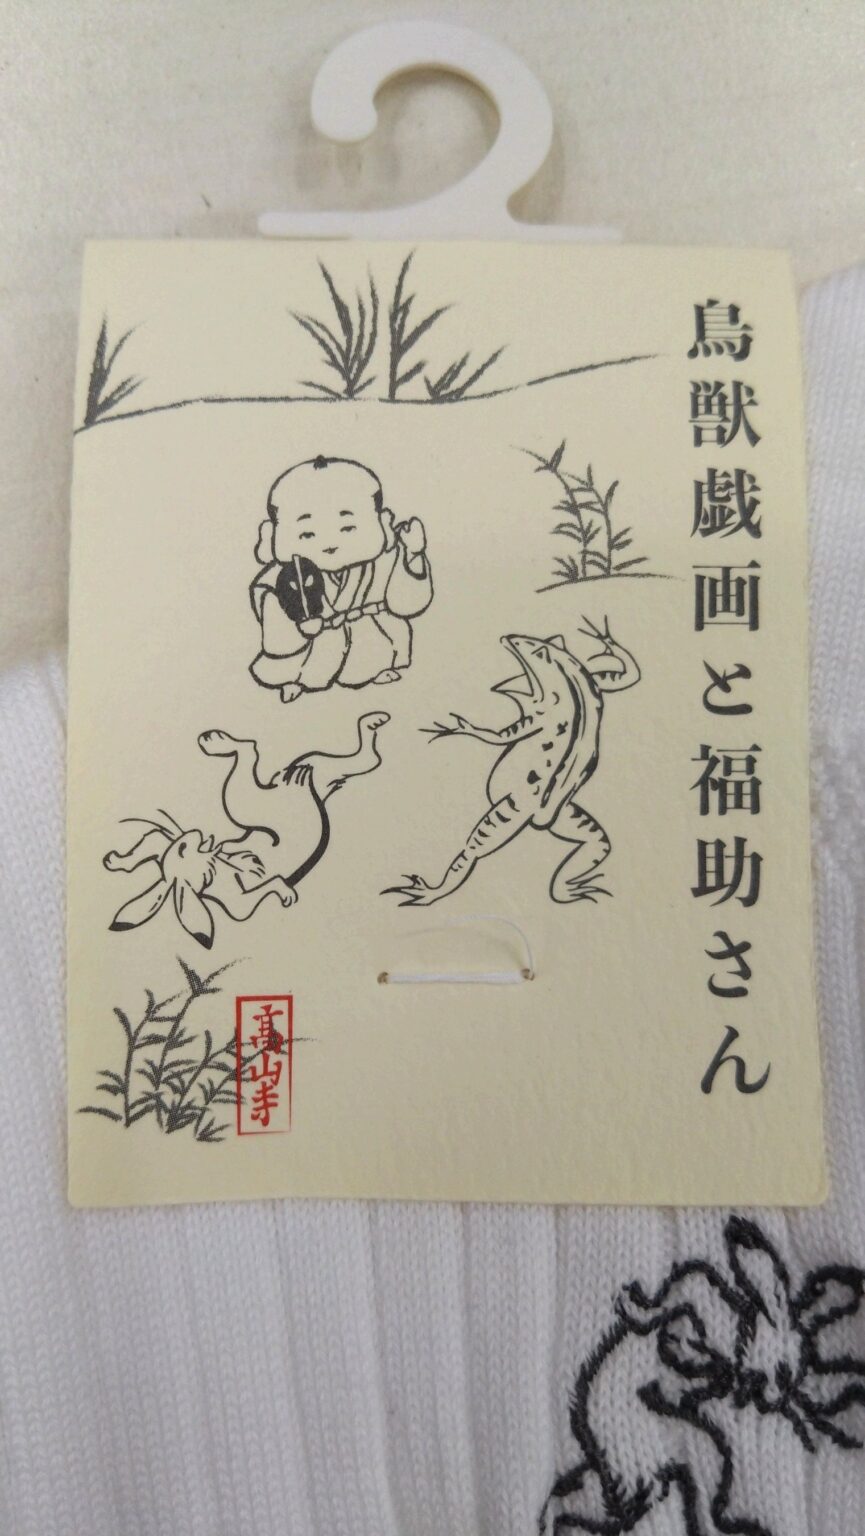 鳥獣戯画と福助さん
高山寺